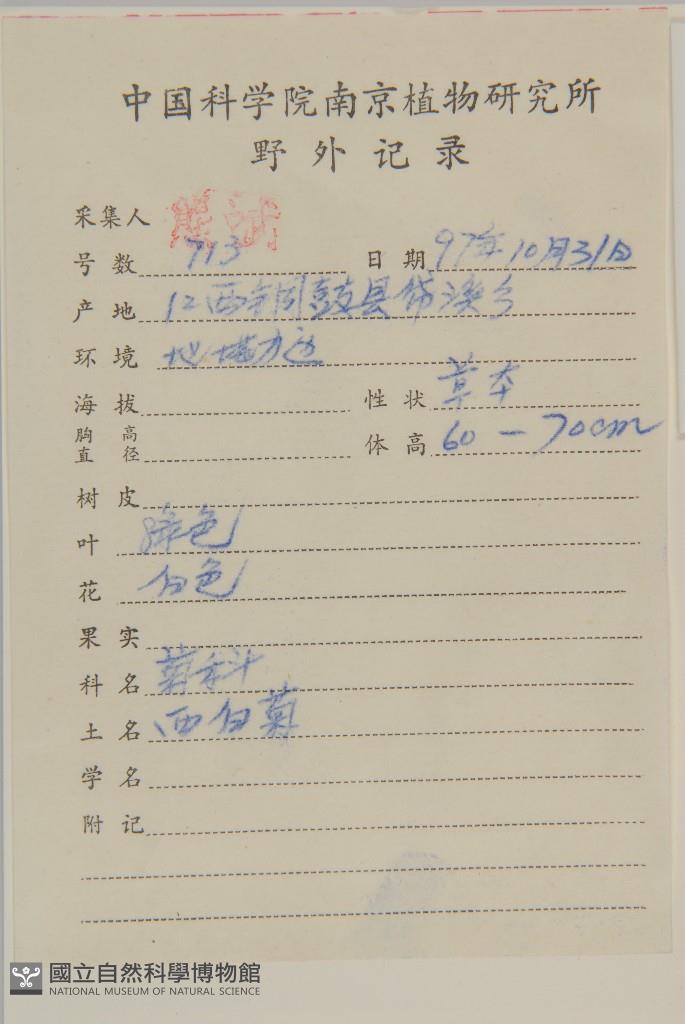 中国科学院南京植物研究所
野外记录
采集人 熊
号数 713 日期 97年10月31日
产地 江西铜鼓县带溪乡
环境 地塝方边
海拔 性状 草本
胸高直径 体高 60-70cm
树皮
叶 绿色
花 白色
果实
科名 菊科
土名 西白菊
学名
附记
國立自然科學博物館
NATIONAL MUSEUM OF NATURAL SCIENCE